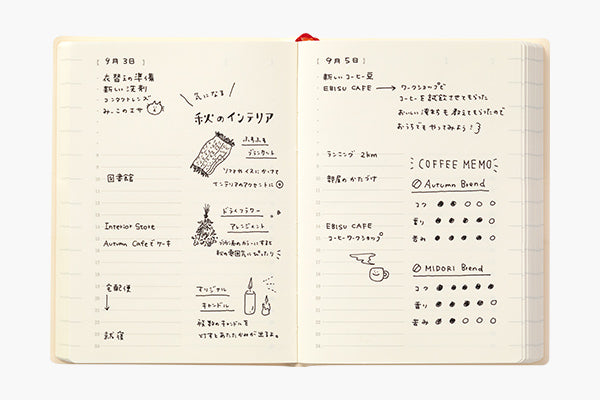 [ 9月3日 ]
・衣替えの準備
・新しい洗剤
・コンタクトレンズ
・みーこのエサ
気になる
秋のインテリア
ふわふわ
ブランケット
ソファやイスにかけて
インテリアのアクセントに
図書館
ドライフラワー
アレンジメント
Interior Store
Autumn Cafeでケーキ
秋の雰囲気にぴったり
宅配便
オリジナル
キャンドル
複数のキャンドルを
灯すとあたたかみが出るよ。
新宿
[ 9月5日 ]
・新しいコーヒー豆
・EBISU CAFE → ワークショップで
コーヒーを試飲させてもらった
おいしい淹れ方も教えてもらったので
おうちでもやってみよう!
ランニング 2km
COFFEE MEMO
部屋のかたづけ
Autumn Blend
コク
香り
苦み
EBISU CAFE
コーヒーワークショップ
MIDORI Blend
コク
香り
苦み